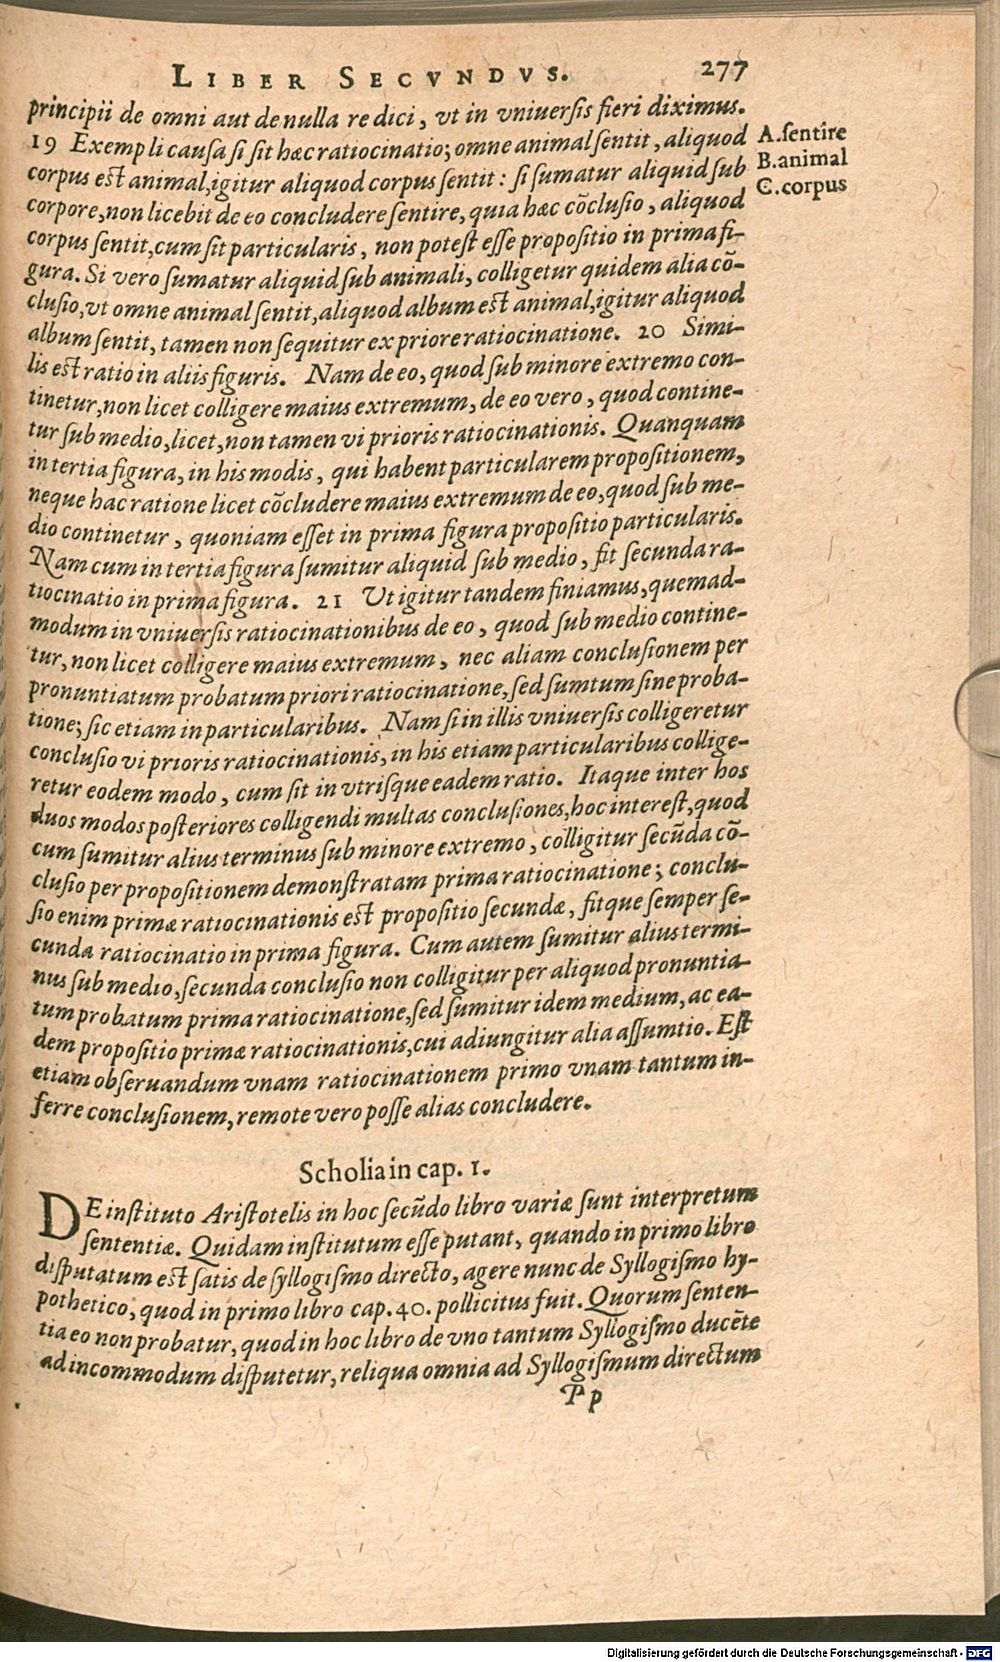 LIBER SECVNDVS. 277
principii de omni aut de nulla re dici, vt in vniuersis fieri diximus.
19 Exempli causa si sit hæc ratiocinatio; omne animal sentit, aliquod
corpus est animal, igitur aliquod corpus sentit: si sumatur aliquid sub
corpore, non licebit de eo concludere sentire, quia hæc cõclusio, aliquod
corpus sentit, cum sit particularis, non potest esse propositio in prima fi-
gura. Si vero sumatur aliquid sub animali, colligetur quidem alia cõ-
clusio, vt omne animal sentit, aliquod album est animal, igitur aliquod
album sentit, tamen non sequitur ex priore ratiocinatione. 20 Simi-
lis est ratio in aliis figuris. Nam de eo, quod sub minore extremo con-
tinetur, non licet colligere maius extremum, de eo vero, quod contine-
tur sub medio, licet, non tamen vi prioris ratiocinationis. Quanquam
in tertia figura, in his modis, qui habent particularem propositionem,
neque hac ratione licet cõcludere maius extremum de eo, quod sub me-
dio continetur, quoniam esset in prima figura propositio particularis.
Nam cum in tertia figura sumitur aliquid sub medio, fit secunda ra-
tiocinatio in prima figura. 21 Vt igitur tandem finiamus, quemad-
modum in vniuersis ratiocinationibus de eo, quod sub medio contine-
tur, non licet colligere maius extremum, nec aliam conclusionem per
pronuntiatum probatum priori ratiocinatione, sed sumtum sine proba-
tione; sic etiam in particularibus. Nam si in illis vniuersis colligeretur
conclusio vi prioris ratiocinationis, in his etiam particularibus collige-
retur eodem modo, cum sit in vtrisque eadem ratio. Itaque inter hos
duos modos posteriores colligendi multas conclusiones, hoc interest, quod
cum sumitur alius terminus sub minore extremo, colligitur secũda cõ-
clusio per propositionem demonstratam prima ratiocinatione; conclu-
sio enim primæ ratiocinationis est propositio secundæ, fitque semper se-
cunda ratiocinatio in prima figura. Cum autem sumitur alius termi-
nus sub medio, secunda conclusio non colligitur per aliquod pronuntia-
tum probatum prima ratiocinatione, sed sumitur idem medium, ac ea-
dem propositio primæ ratiocinationis, cui adiungitur alia assumtio. Est
etiam obseruandum vnam ratiocinationem primo vnam tantum in-
ferre conclusionem, remote vero posse alias concludere.
A. sentire
B. animal
C. corpus
Scholia in cap. 1.
DE instituto Aristotelis in hoc secũdo libro variæ sunt interpretum
sententiæ. Quidam institutum esse putant, quando in primo libro
disputatum est satis de syllogismo directo, agere nunc de Syllogismo hy-
pothetico, quod in primo libro cap. 40. pollicitus fuit. Quorum senten-
tia eo non probatur, quod in hoc libro de vno tantum Syllogismo ducẽte
ad incommodum disputetur, reliqua omnia ad Syllogismum directum
Pp
Digitalisierung gefördert durch die Deutsche Forschungsgemeinschaft - DFG